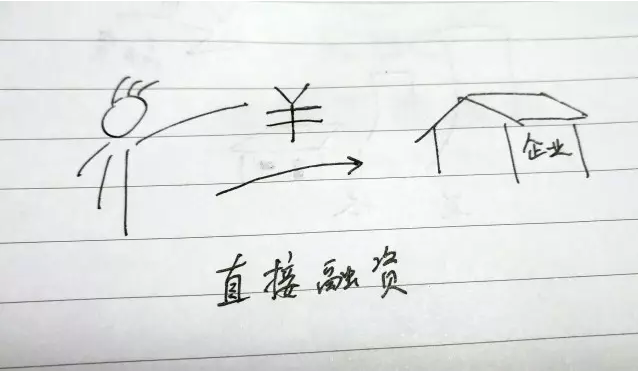 ¥
企业
直接融资